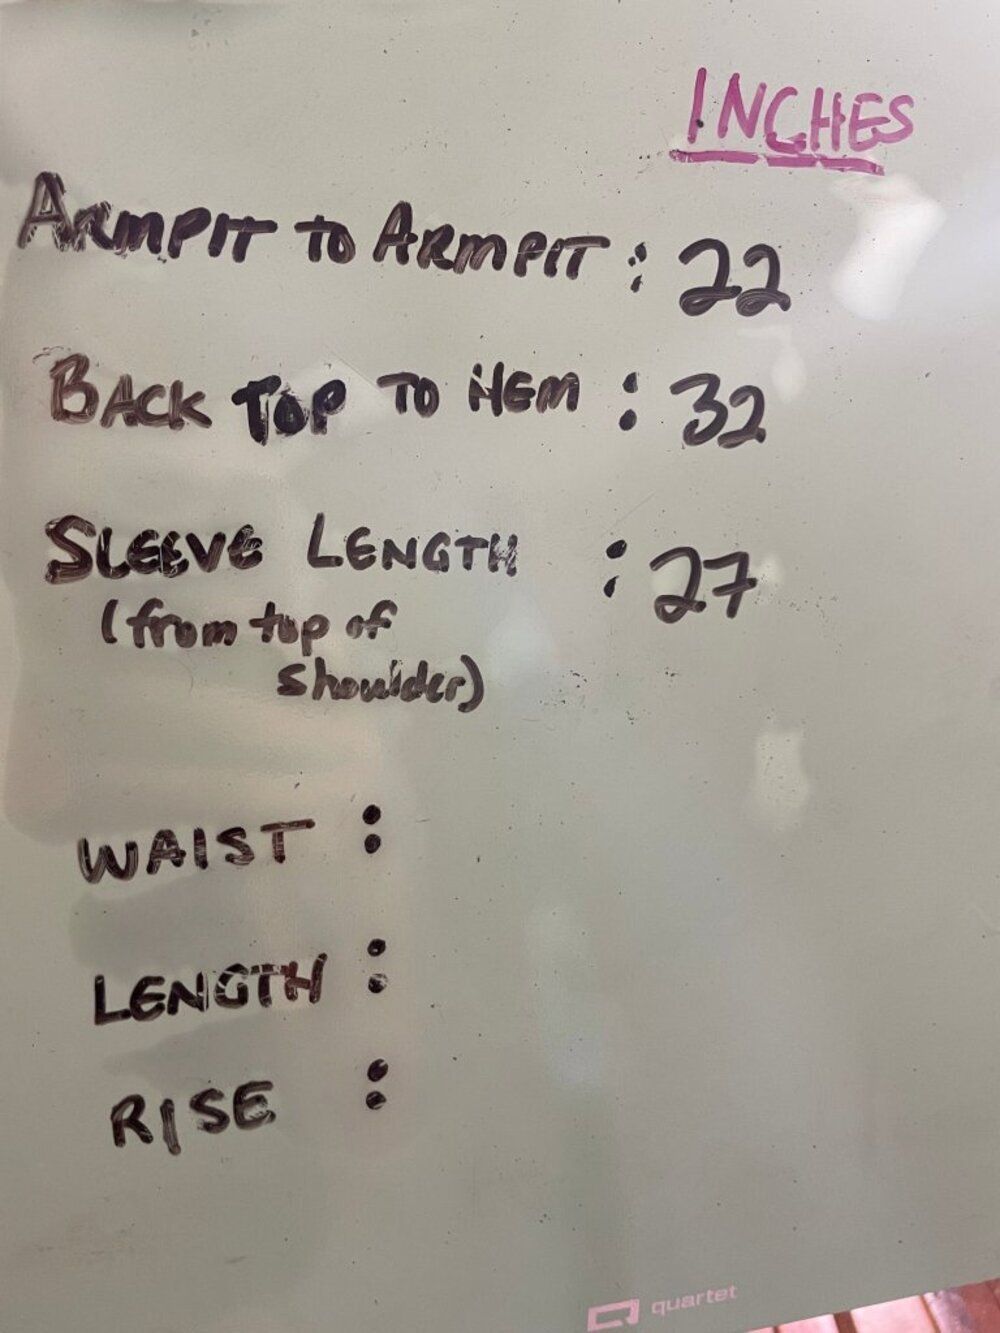 INCHES
ARMPIT TO ARMPIT : 22
BACK TOP TO HEM : 32
SLEEVE LENGTH : 27
(from top of
shoulder)
WAIST :
LENGTH :
RISE :
quartet